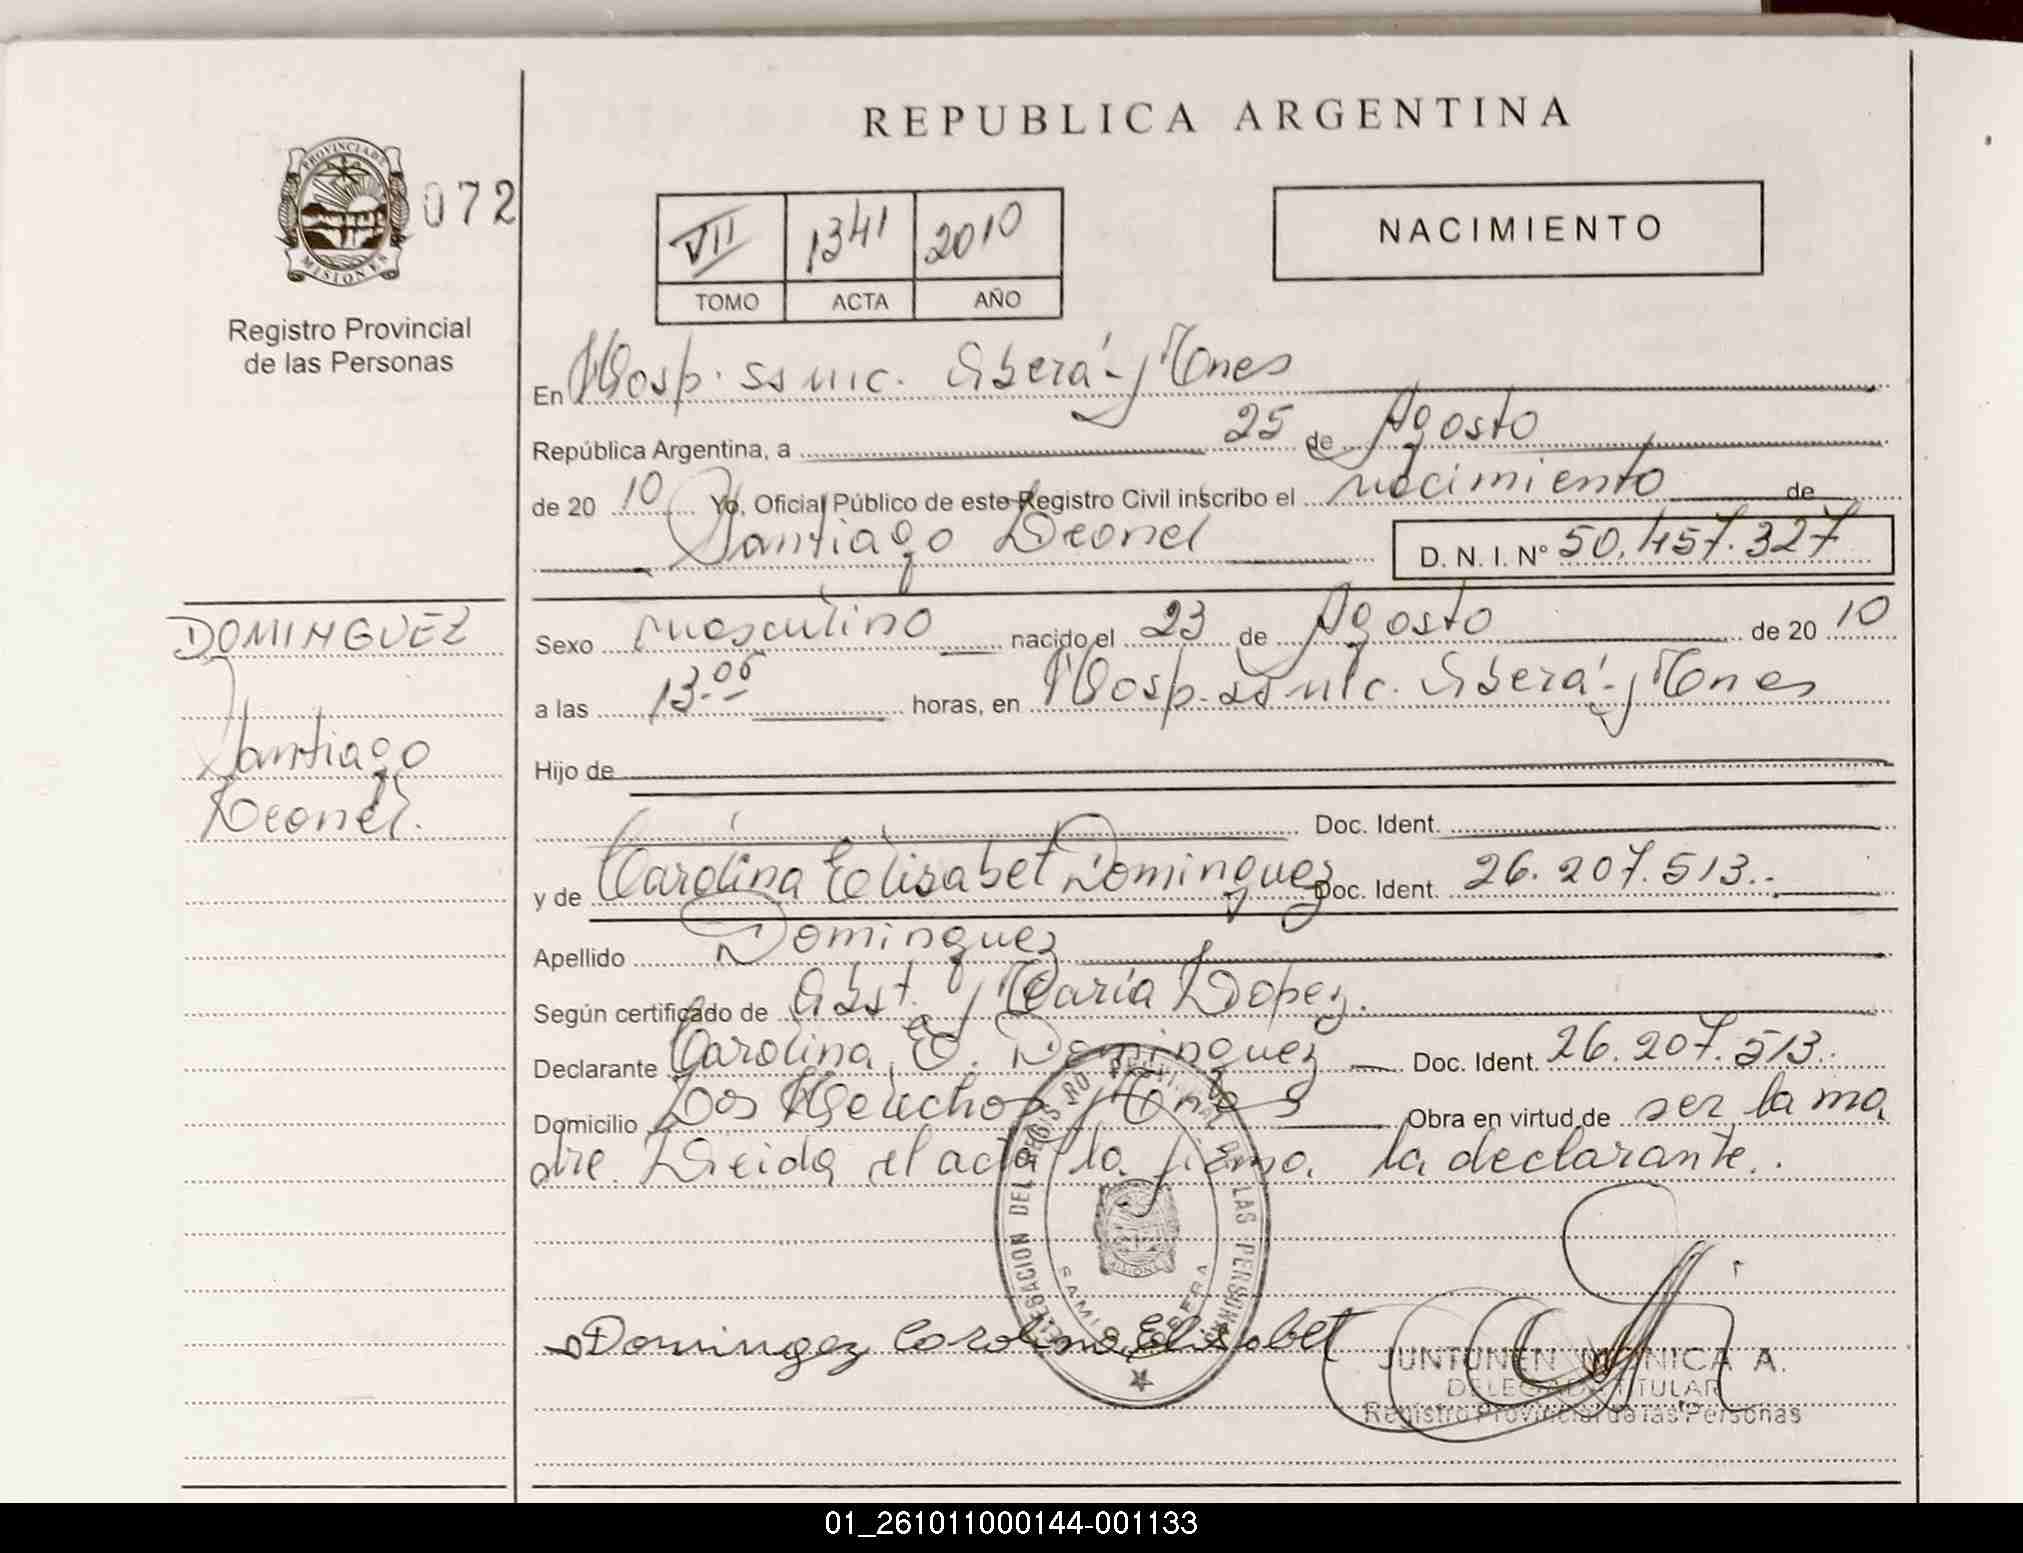 REPUBLICA ARGENTINA
PROVINCIA DE
MISIONES
072
Registro Provincial
de las Personas
VII 1341 2010
TOMO ACTA AÑO
NACIMIENTO
En Hosp. ss mc. Oberá - Mnes
República Argentina, a 25 de Agosto
de 2010 Yo, Oficial Público de este Registro Civil inscribo el nacimiento de
Santiago Leonel D. N. I. N° 50.457.327
DOMINGUEZ
Santiago
Leonel.
Sexo masculino nacido el 23 de Agosto de 2010
a las 13.06 horas, en Hosp. ss mc. Oberá - Mnes
Hijo de
Doc. Ident.
y de Carolina Elisabet Dominguez Doc. Ident. 26.207.513.-
Apellido Dominguez
Según certificado de Obst. María Lopez.
Declarante Carolina E. Dominguez Doc. Ident. 26.207.513.-
Domicilio Los Mnes Obra en virtud de ser la ma
dre. Leida el acta la firma la declarante..
DELEGACION DEL REGISTRO PROVINCIAL DE LAS PERSONAS
MISIONES
Dominguez Carolina Elisabet
JUNTUNEN MONICA A.
DELEGADA TITULAR
Registro Provincial de las Personas
01_261011000144-001133